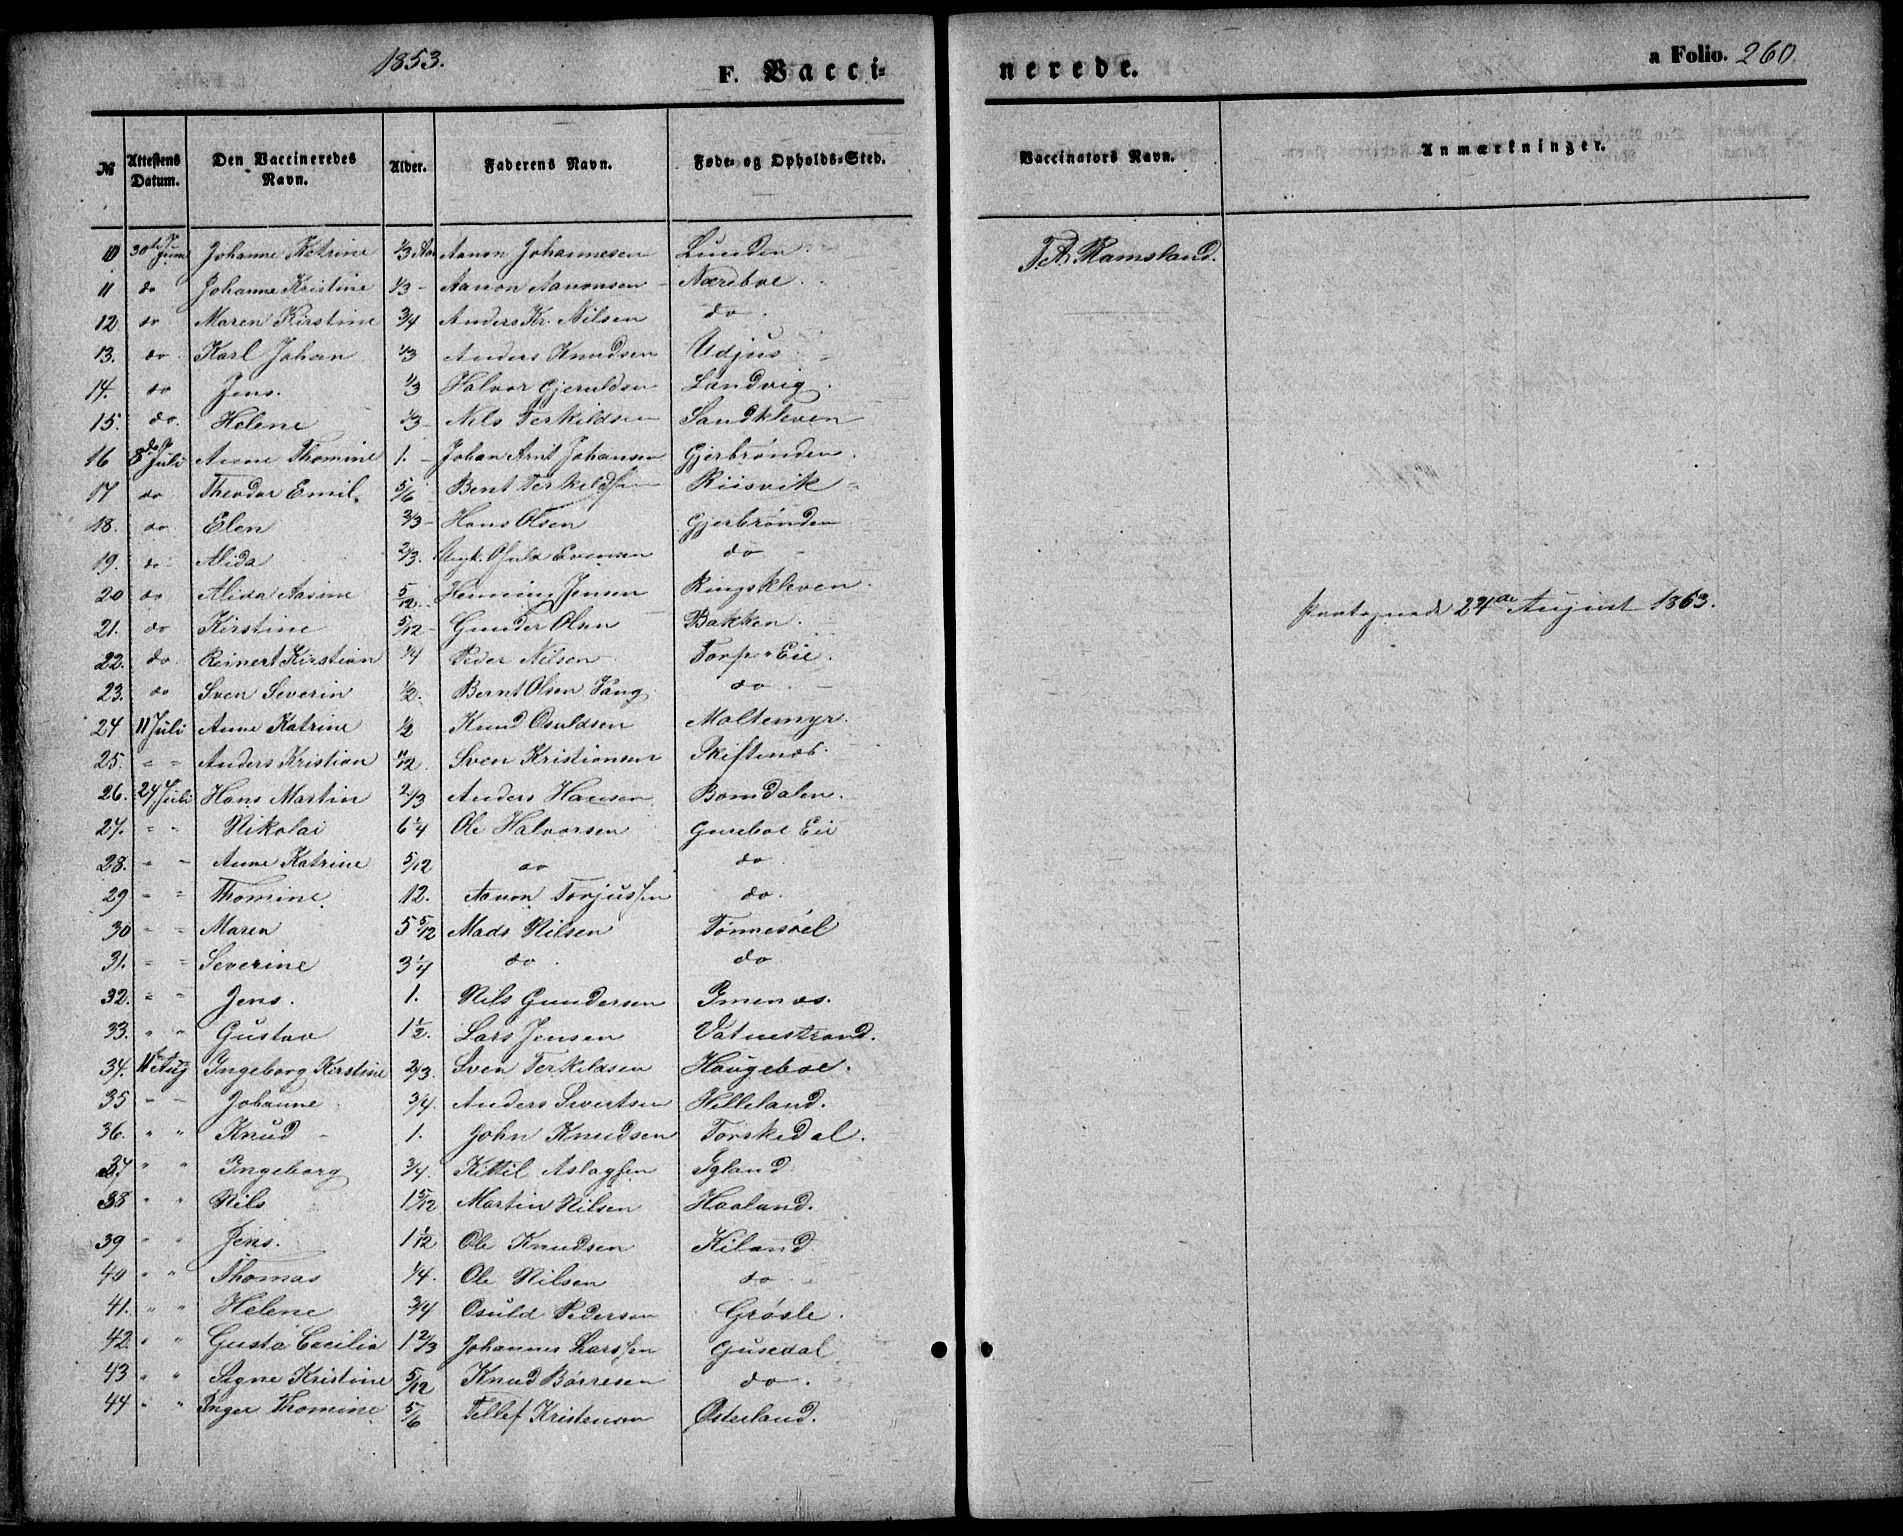 1853.
F. Vacci=
nerede.
a Folio. 260.
№ Attestens Datum. Den Vaccineredes Navn. Alder. Faderens Navn. Føde- og Opholds-Sted. Vaccinators Navn. Anmærkninger.
10 30te Juni Johanne Katrine 1/3 Aar Aanon Johannesen Lunden T. A. Ramsland.
11 do Johanne Kristine 1/3 - Aanon Aanonsen Næreboe
12 do Maren Kirstine 3/4 Anders Kr. Nilsen do
13. do Karl Johan 1/3 Anders Knudsen Udjus
14. do Jens. 1/3 Halvor Gjeruldsen Landvig
15. do. Helene 1/3 Nils Terkildsen Sandkleven
16 8de Juli Anne Thomine 1. - Johan Arnt Johansen Gjerbrønden
17 do Theodor Emil. 5/6 Bent Terkildsen Riisvik
18. do Elen 2/3 - Hans Olsen Gjerbrønden
19. do Alida 2/3. Evensen do
20 do Alida Aasine 5/12 Henning Jensen Ringskleven
21. do Kirstine 5/12 - Gunder Olsen Bakken.
22. do Reinert Kirstian 1/4 Peder Nilsen Torp Eie.
23. do Sven Severin 1/2. Bernt Olsen Vang do
24 11 Juli Anne Katrine 1/2 Knud Osuldsen Moltemyr.
25. " " Anders Kristian 11/12. Sven Kristiansen Skiftenæs.
26. 24 Juli Hans Martin 2/3 Anders Hansen Bomdalen.
27. " " Nikolai 6 1/4 Ole Halvorsen Gureboe Eie
28. " " Anne Katrine 5/12 do do
29 " " Thomine 12. Aanon Torjussen do.
30 " " Maren 5 5/12 Mads Nilsen Tønnesøel
31. " " Severine 3 1/4 do do
32. " " Jens. 1. Nils Gundersen Imenæs.
33. " " Gustav 1 1/2. Lars Jensen Vatnestrand.
34. 11te Aug Ingeborg Kirstine 2/3. Sven Terkildsen Haugeboe.
35 " " Johanne 3/4. Anders Sivertsen Hilleland.
36. " " Knud 1. John Knudsen Torskedal.
37 " " Ingeborg 3/4. Kittil Aslagsen Igland
38 " " Nils 1 5/12 Martin Nilsen Haaland.
39 " " Jens. 1 1/12 Ole Knudsen Kiland
40 " " Thomas 1/4. Ole Nilsen do
41. " " Helene 3/4 Osuld Pedersen Grøsle.
42. " " Gusta Cecilia 1 2/3 Johannes Larssen Gusedal
43 " " Signe Kristine 5/12 Knud Børresen do.
44 " " Inger Thomine 5/6 Tellef Kristensen Østerland.
24de August 1863.